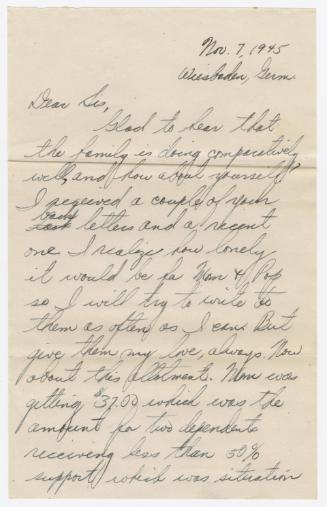 Nov. 7, 1945
Wiesbaden, Germ.
Dear Sis,
Glad to hear that
the family is doing comparatively
well, and how about yourself?
I received a couple of your
back
letters and a recent
one I realize how lonely
it would be for Mom & Pop
so I will try to write to
them as often as I can. But
give them my love, always. Now
about this allotment. Mom was
getting $37.00 which was the
amount for two dependents
receiving less than 50%
support, which was situation